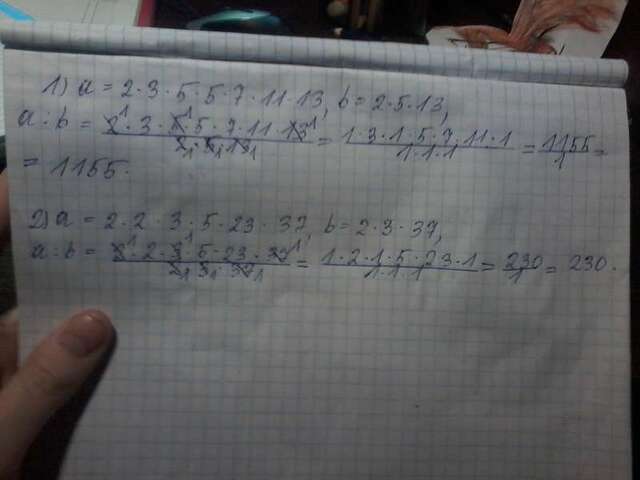 1) a = 2·3·5·5·7·11·13, b = 2·5·13,
a : b = 2¹·3·5¹·5·7·11·13¹ / 2₁·5₁·13₁ = 1·3·1·5·7·11·1 / 1·1·1 = 1155 / 1 =
= 1155.
2) a = 2·2·3·5·23·37, b = 2·3·37,
a : b = 2¹·2·3¹·5·23·37¹ / 2₁·3₁·37₁ = 1·2·1·5·23·1 / 1·1·1 = 230 / 1 = 230.